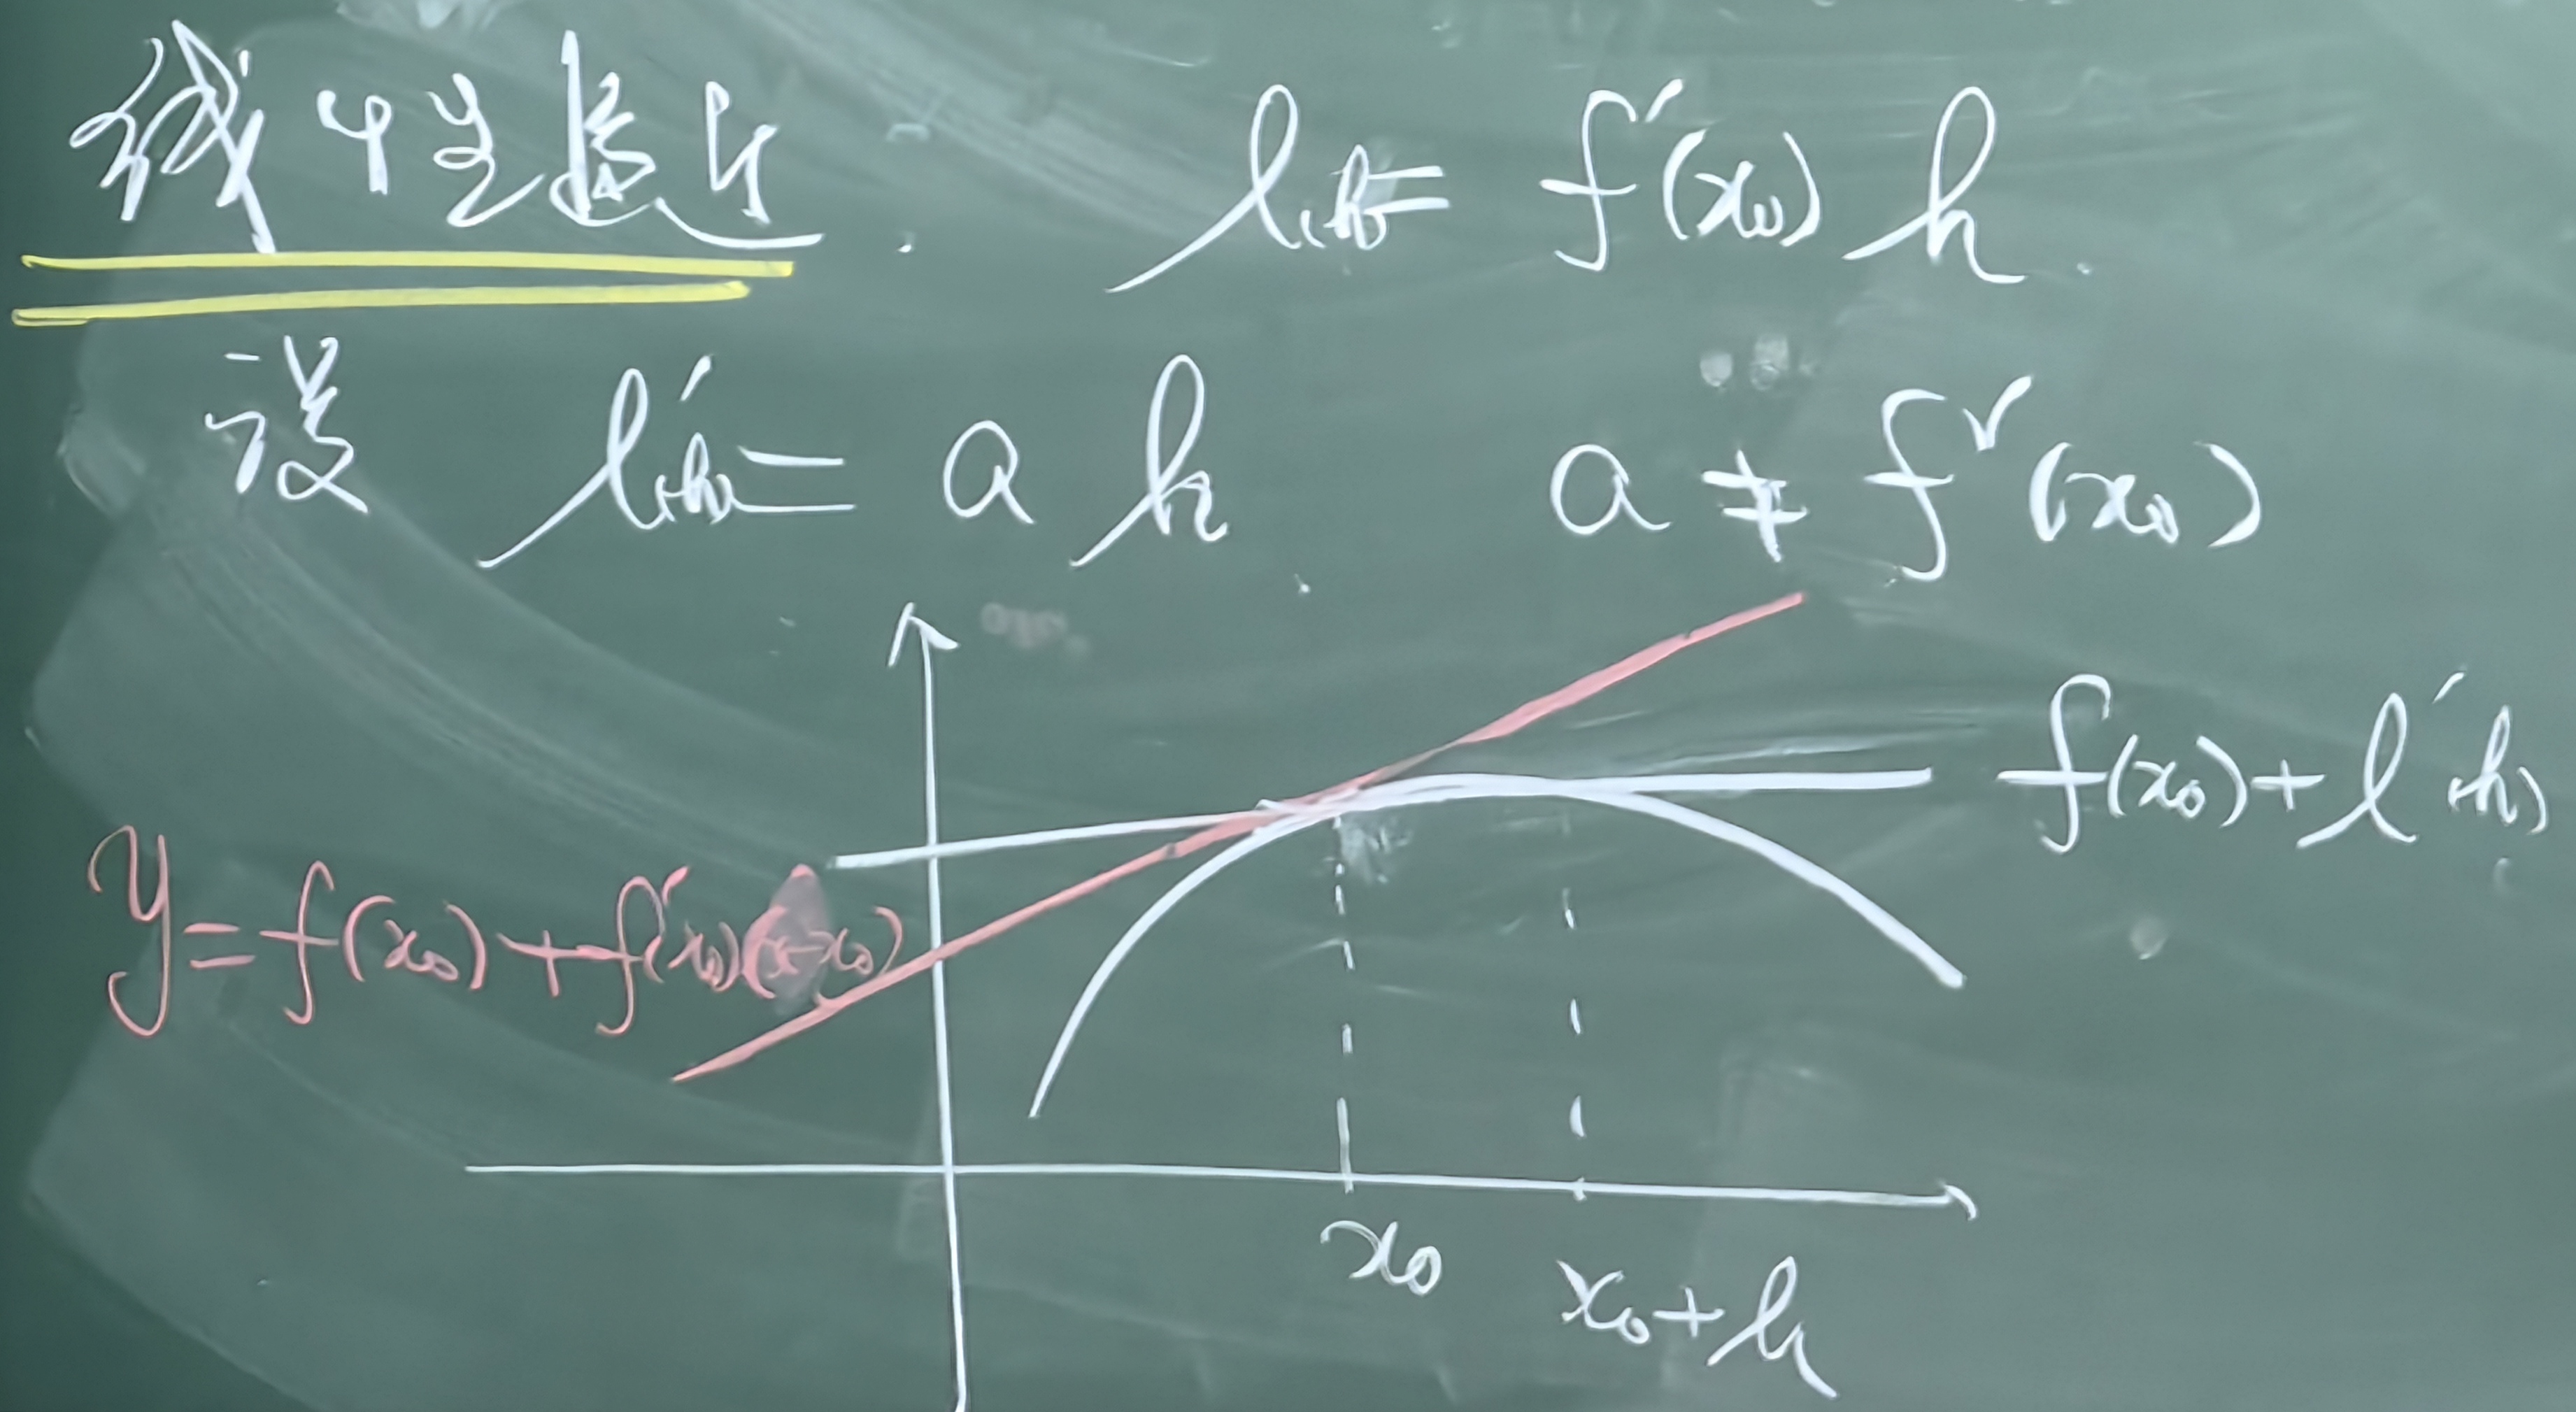 线性逼近. l(h)= f'(x₀) h.
设 l'(h)= a h. a ≠ f'(x₀)
f(x₀)+l'(h)
y=f(x₀)+f'(x₀)(x-x₀)
x₀
x₀+h